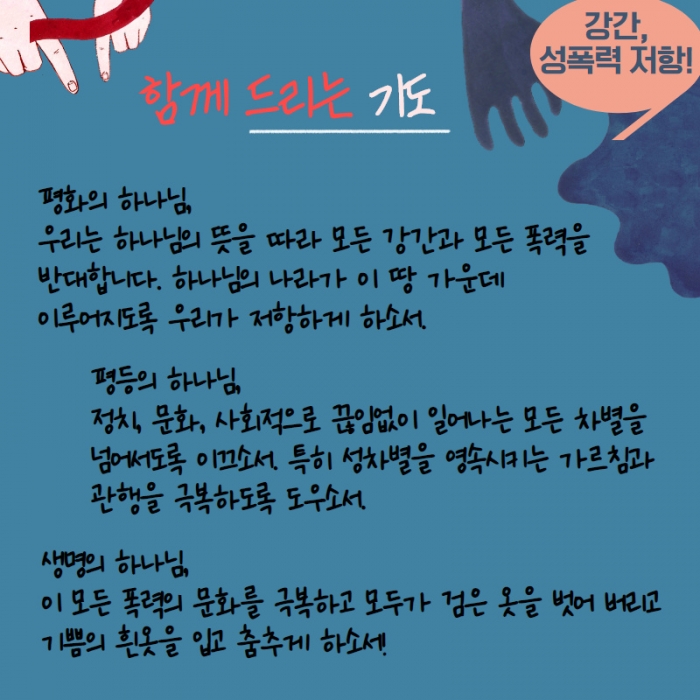 강간,
성폭력 저항!
함께 드리는 기도
평화의 하나님,
우리는 하나님의 뜻을 따라 모든 강간과 모든 폭력을
반대합니다. 하나님의 나라가 이 땅 가운데
이루어지도록 우리가 저항하게 하소서.
평등의 하나님,
정치, 문화, 사회적으로 끊임없이 일어나는 모든 차별을
넘어서도록 이끄소서. 특히 성차별을 영속시키는 가르침과
관행을 극복하도록 도우소서.
생명의 하나님,
이 모든 폭력의 문화를 극복하고 모두가 검은 옷을 벗어 버리고
기쁨의 흰옷을 입고 춤추게 하소서!